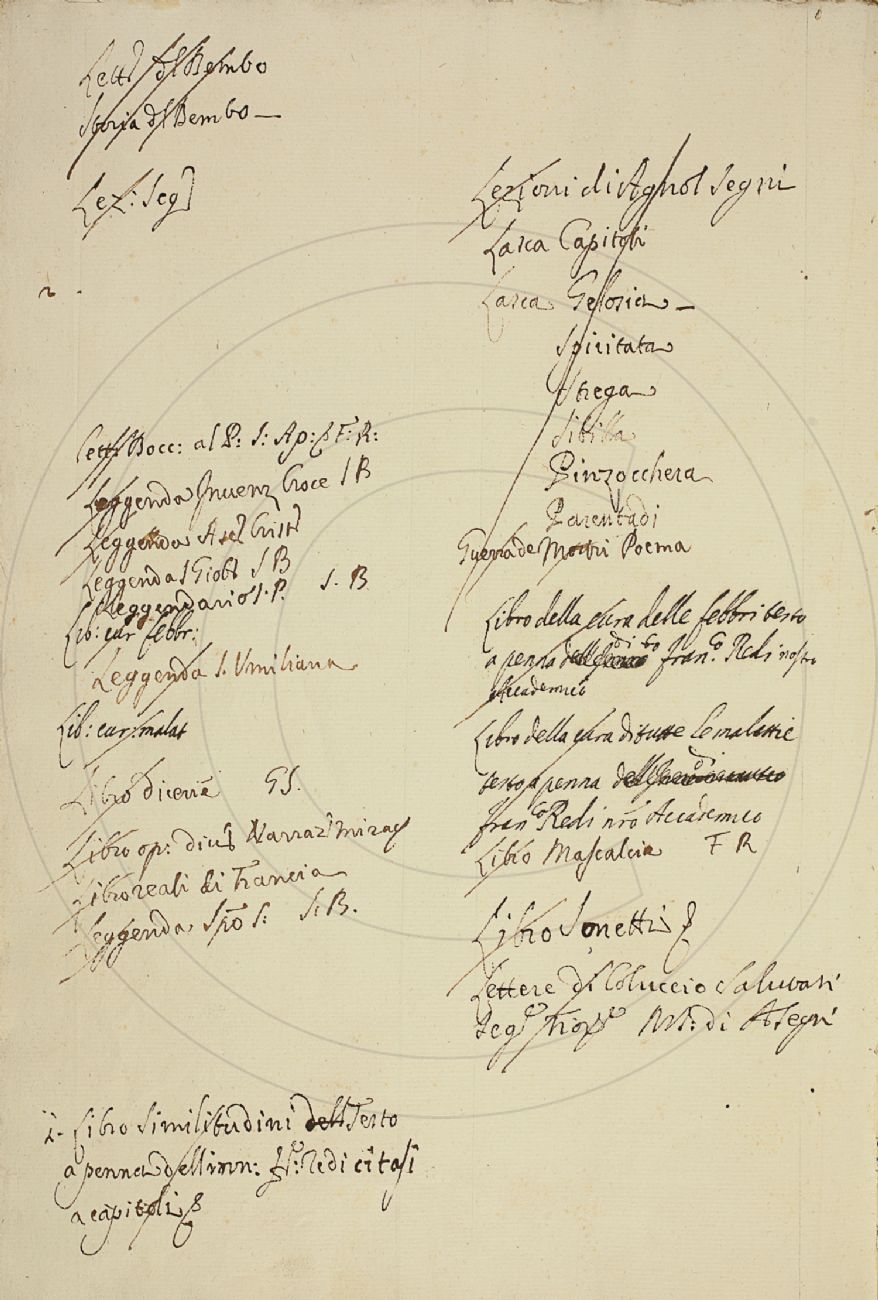 Lett. del Bembo
Storia del Bembo —
Lez: Seg
Lett. Bocc: al P: S: Ap: F: R:
Leggenda Invenz Croce S B
Leggenda Asc. Crist
Leggenda S Giob S B
Leggendario S. P. S. B
Lib: cur febbr:
Leggenda S. Umiliana
Lib: cur: malat
Libro diceríe GS.
Libro op: div Narraz mirac
Libro reali di Francia
Leggenda Spō S: S: B.
Libro Similitudini dell Testo
a penna dell Redi citasi
a capitoli
Lezioni di Agnol Segni
Lasca Capitoli
Lasca Gelosia —
Spiritata
Strega
Sibilla
Pinzochera
Parentadi
Guerra de Mostri Poema
Libro della cura delle febbri testo
a penna di Fran.co Redi nostro
Accademico
Libro della cura di tutte le malattie
testo a penna di
Fran.co Redi nrō Accademico
Libro Mascalcia F R
Libro Sonetti
Lettere di Coluccio Salutati
Seg. Fior. Ms: di A Segni